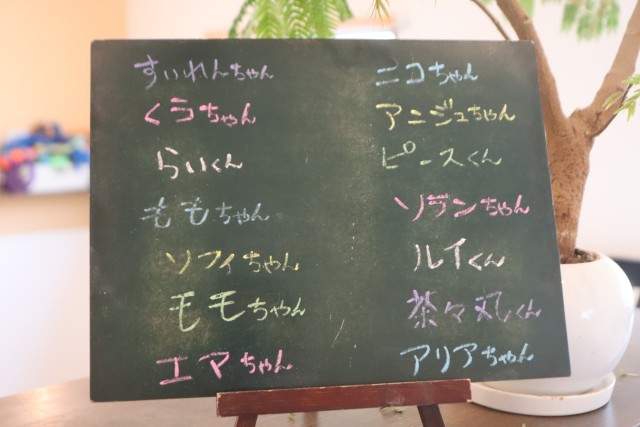 すいれんちゃん
くうちゃん
らいくん
ももちゃん
ソフィちゃん
モモちゃん
エマちゃん
ニコちゃん
アンジュちゃん
ピースくん
ソランちゃん
ルイくん
茶々丸くん
アリアちゃん